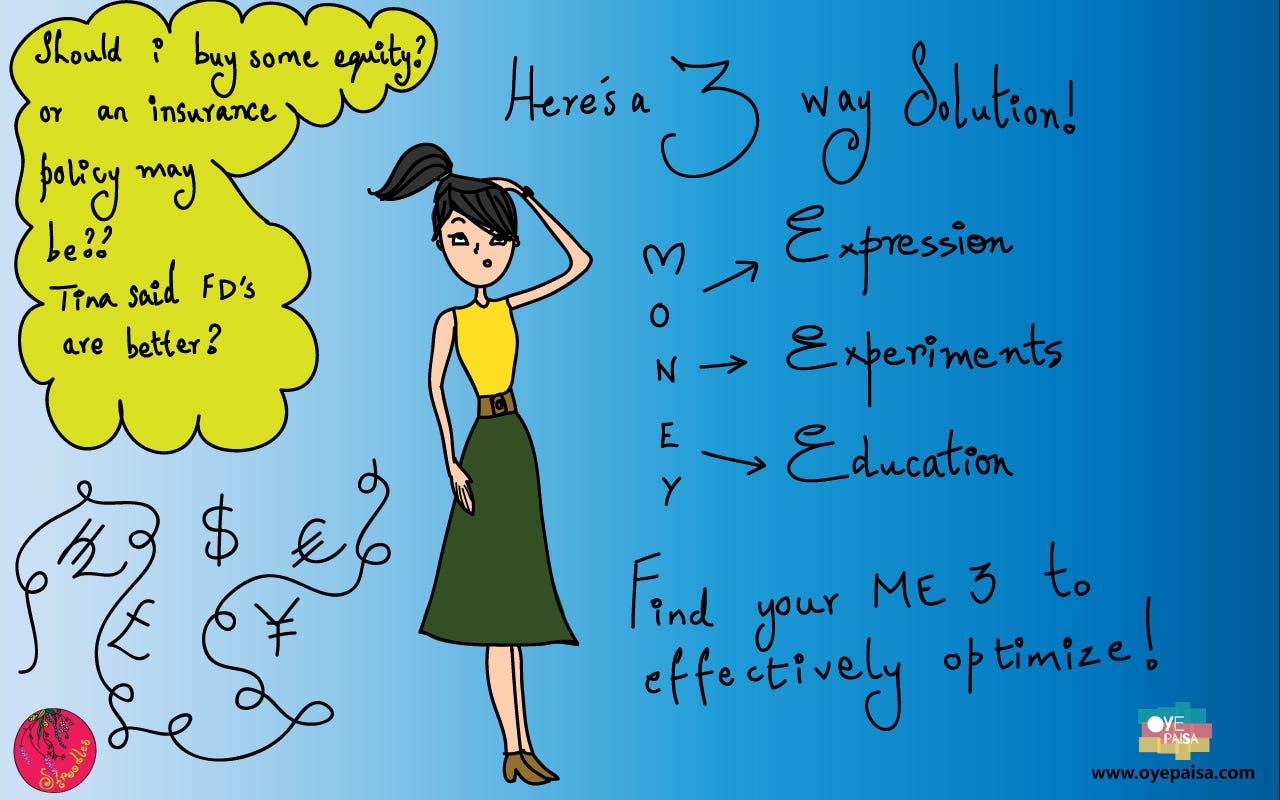 Should i buy some equity?
or an insurance
policy may
be??
Tina said FD's
are better?
Here's a 3 way Solution!
M
O
N
E
Y
→ Expression
→ Experiments
→ Education
Find your ME 3 to
effectively optimize!
$ €
£ ¥
Shroodles
OYE
PAISA
www.oyepaisa.com